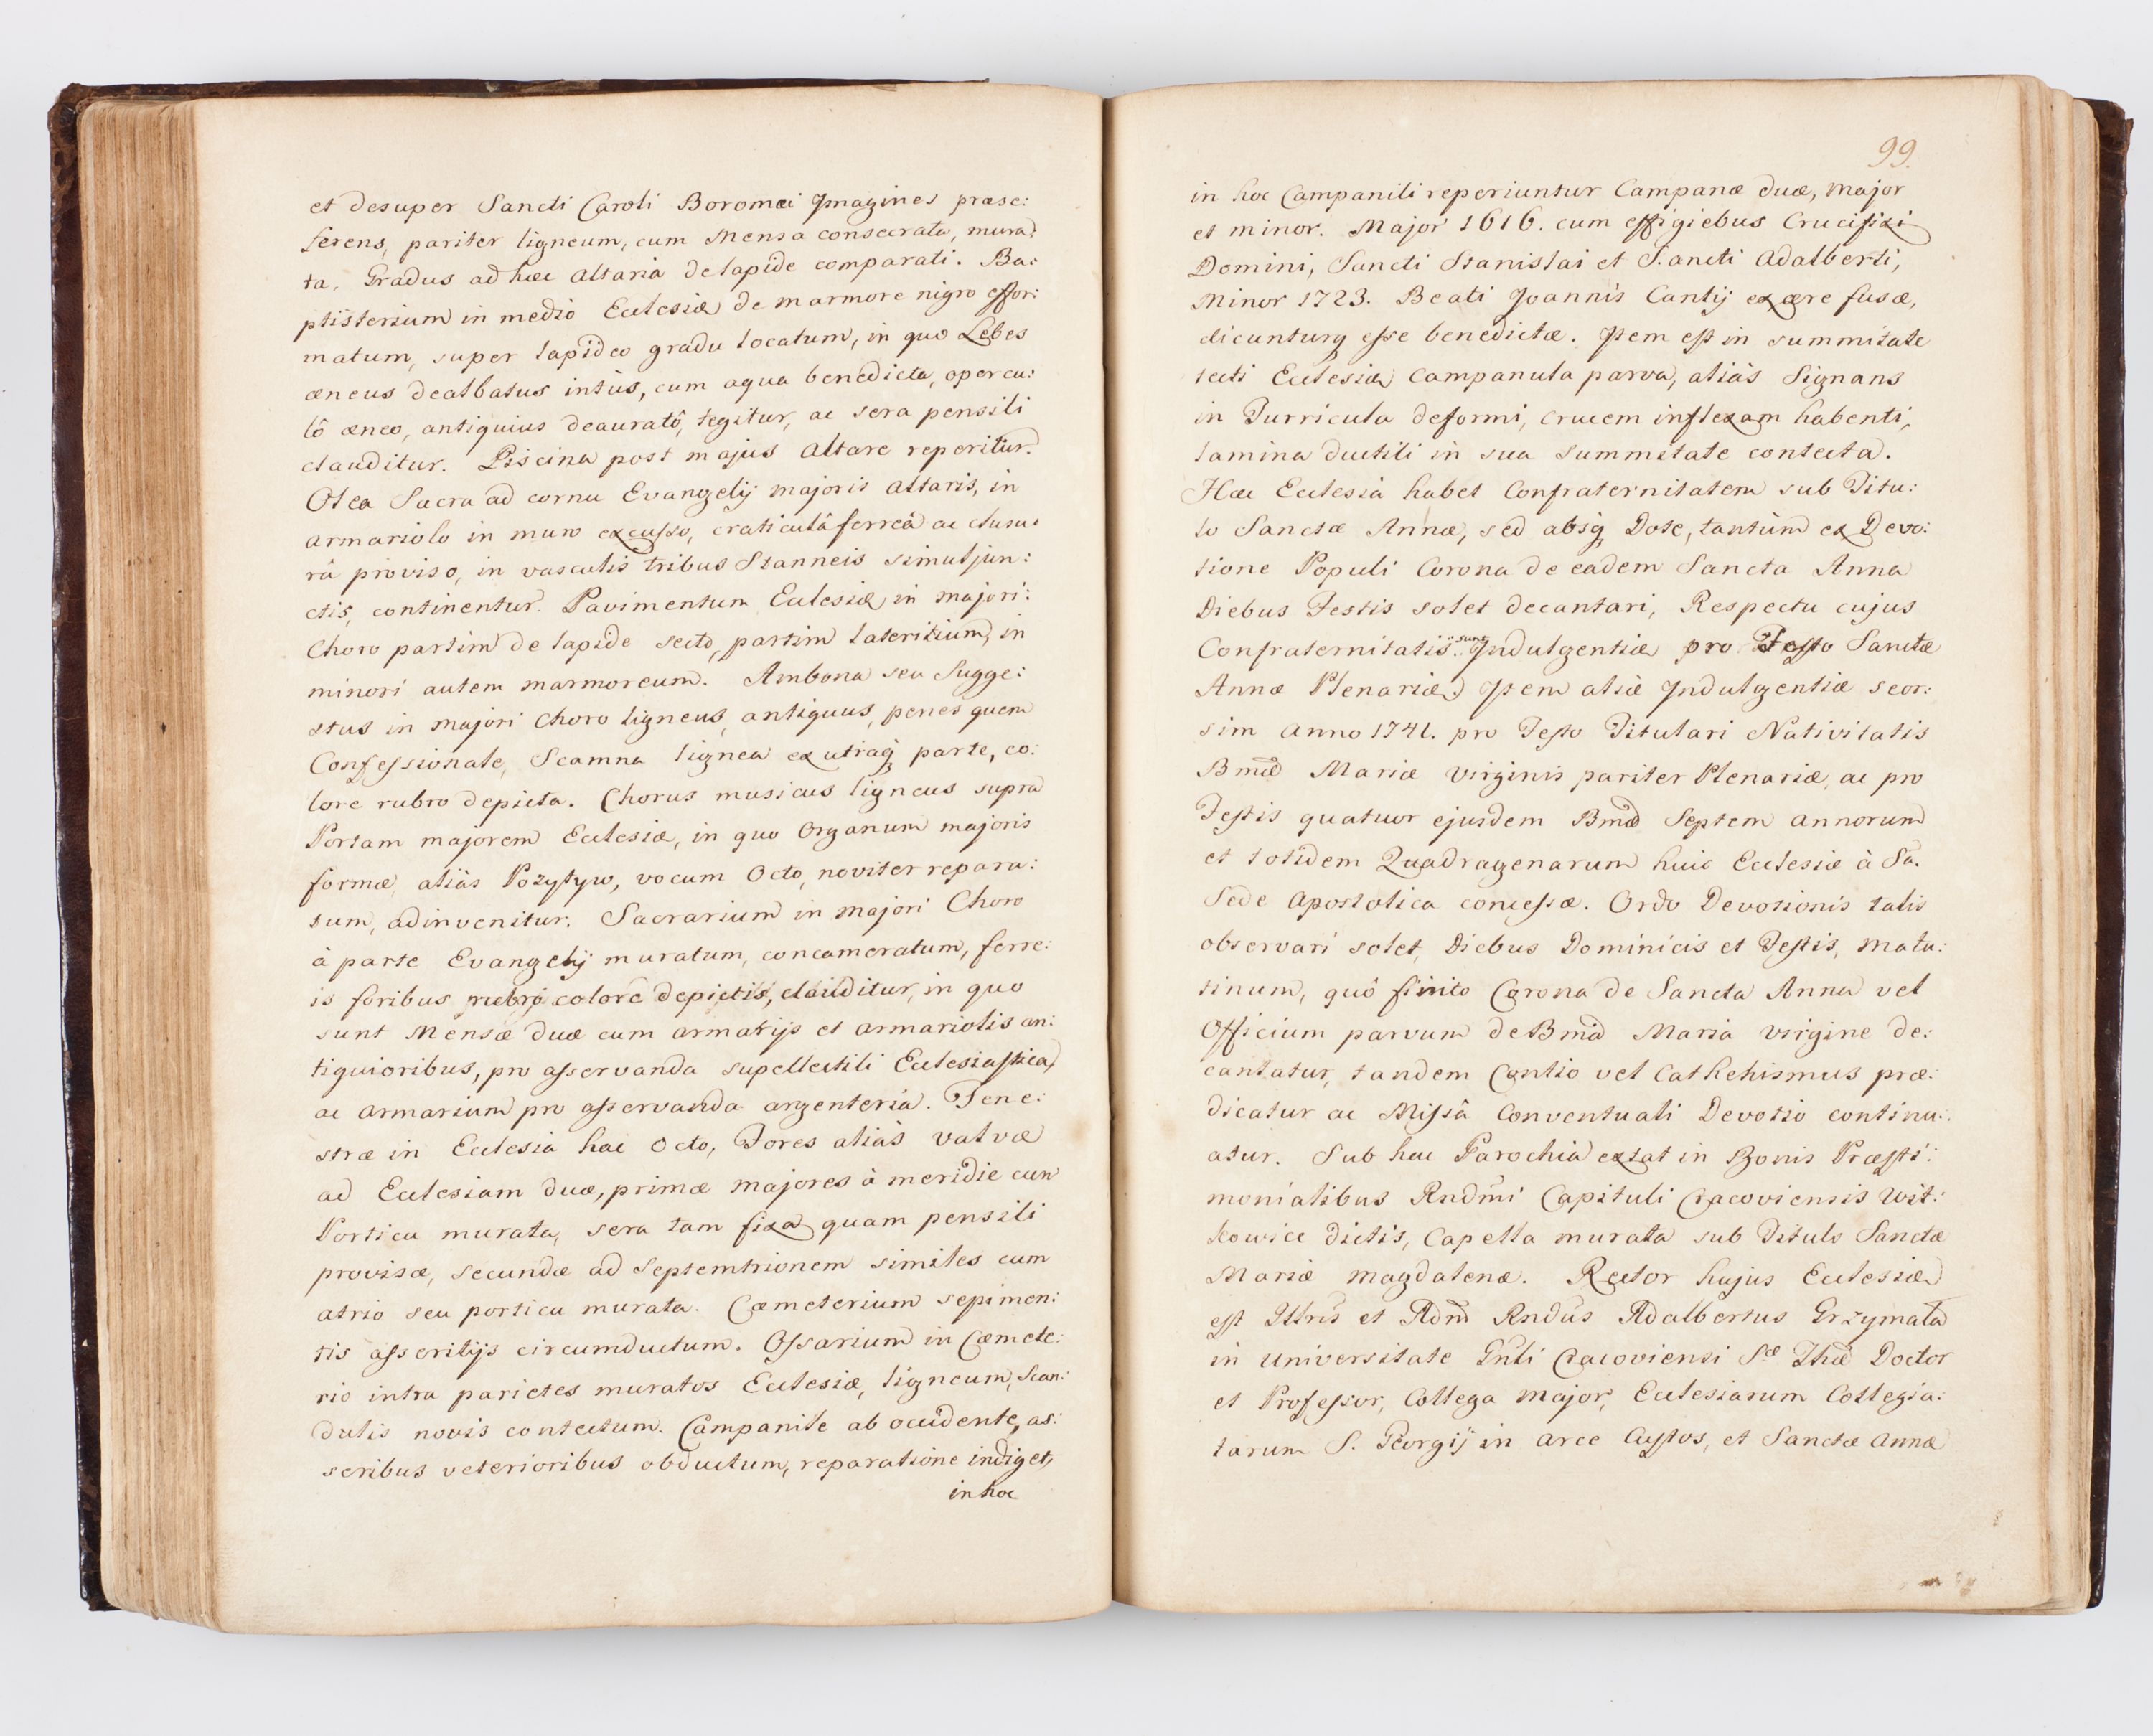 et desuper Sancti Caroli Boromæi Imagines præse:
ferens, pariter ligneum, cum Mensa consecrata, mura:
ta. Gradus ad hæc Altaria de lapide comparati. Ba:
ptisterium in medio Ecclesiæ de marmore nigro effor:
matum, super lapideo gradu locatum, in quo Lebes
æneus dealbatus intùs, cum aqua benedicta, opercu:
lô æneo, antiquius deauratô, tegitur, ac sera pensili
clauditur. Piscina post majus Altare reperitur.
Olea Sacra ad cornu Evangelij majoris Altaris, in
armariolo in muro excusso, craticulâ ferreâ ac clusu:
râ proviso, in vasculis tribus Stanneis simul jun:
ctis, continentur. Pavimentum Ecclesiæ in majori:
Choro partim de lapide secto, partim lateritium, in
minori autem marmoreum. Ambona seu Sugge:
stus in majori Choro ligneus, antiquus, penes quem
Confessionale, Scamna lignea ex utraq; parte, co:
lore rubro depicta. Chorus musicus ligneus supra
Portam majorem Ecclesiæ, in quo Organum majoris
formæ, aliàs Pozytyw, vocum Octo, noviter repara:
tum, adinvenitur. Sacrarium in majori Choro
à parte Evangelij muratum, concameratum, ferre:
is foribus rubrô colore depictis, clauditur, in quo
sunt Mensæ duæ cum armarijs et armariolis an:
tiquioribus, pro asservanda supellectili Ecclesiastica,
ac armarium pro asservanda argenteria. Fene:
stræ in Ecclesia hac Octo, Fores aliàs valvæ
ad Ecclesiam duæ, primæ majores à meridie cum
Porticu murata, sera tam fixa quam pensili
provisæ, secundæ ad Septemtrionem similes cum
atrio seu porticu murata. Cæmeterium sepimen:
tis asseritijs circumductum. Ossarium in Cæmete:
rio intra parietes muratos Ecclesiæ, ligneum, Scan:
dulis novis contectum. Campanile ab occidente, as:
seribus veterioribus obductum, reparatione indiget,
in hoc
99.
in hoc Campanili reperiuntur Campanæ duæ, Major
et minor. Major 1616. cum effigiebus Crucifixi
Domini, Sancti Stanislai et S.ancti Adalberti,
Minor 1723. Beati Joannis Cantij ex ære fusæ,
dicunturq esse benedictæ. Item est in summitate
tecti Ecclesiæ Campanula parva, aliàs Signans
in Turricula deformi, crucem inflexam habenti,
lamina ductili in sua summitate contecta.
Hæc Ecclesia habet Confraternitatem sub Titu:
lo Sanctæ Annæ, sed absq; Dote, tantùm ex Devo:
tione Populi Corona de eadem Sancta Anna
Diebus Festis solet decantari, Respectu cujus
Confraternitatis sunt Indulgentiæ pro Festo Sanctæ
Annæ Plenariæ. Item aliæ Indulgentiæ seor:
sim Anno 1741. pro Festo Titulari Nativitatis
Bmæ Mariæ Virginis pariter Plenariæ, ac pro
Festis quatuor ejusdem Bmæ Septem annorum
et totidem Quadragenarum huic Ecclesiæ à Sa.
Sede Apostolica concessæ. Ordo Devotionis talis
observari solet, Diebus Dominicis et Festis, Matu:
tinum, quô finito Corona de Sancta Anna vel
Officium parvum de Bmâ Maria Virgine de:
cantatur, tandem Contio vel Cathehismus præ:
dicatur ac Missâ Conventuali Devotio continu:
atur. Sub hac Parochia extat in Bonis Præsti:
monialibus Rndmi Capituli Cracoviensis Wit:
kowice dictis, Capella murata sub Titulo Sanctæ
Mariæ Magdalenæ. Rector hujus Ecclesiæ
est Illris et Adm Rndus Adalbertus Grzymala
in Universitate Gnli Cracoviensi Sæ Thæ Doctor
et Professor, Collega Major, Ecclesiarum Collegia:
tarum S. Georgij in Arce Custos, et Sanctæ Annæ